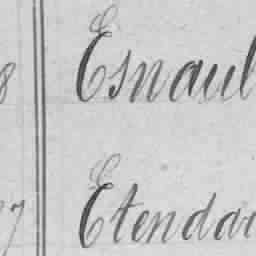 8 Esnaul
7 Etenda